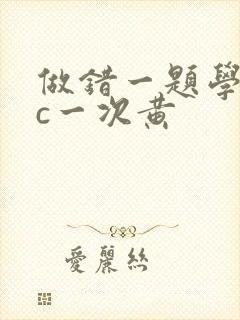 做錯一題學
c一次黃
愛麗絲